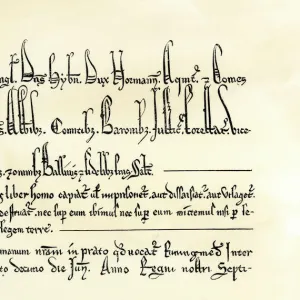 ngl. Dns Hybn. Dux Normann. Aqmt. z Comes
s. Abbibz. Comitibz. Baronibz. Justic. Forestar. vice-
z omnibz Ballivis z fidelibz suis Salt.
s liber homo capiat. ul imprisonet. aut dissaisiat. aut utlaget.
destruat. nec sup eum ibimus nec sup eum mittemus nisi p le-
legem terre.
manum nram in prato qd vocat Runingmed Inter
to decimo die Jun. Anno Regni nostri Septi-